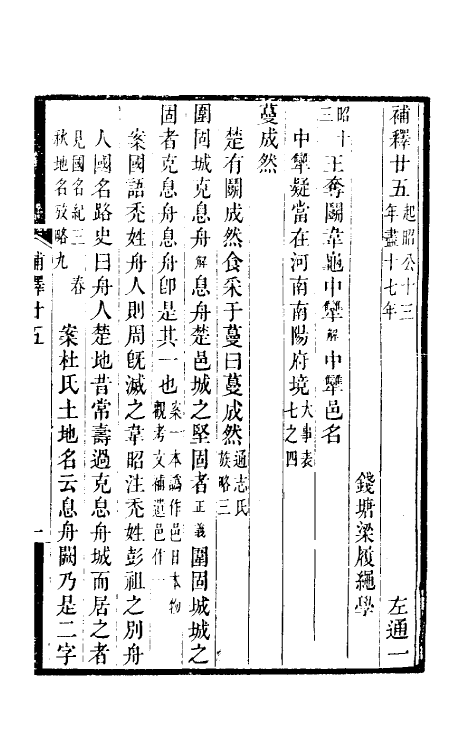 補釋廿五起昭公十三年盡十七年 左通一
錢塘梁履繩學
昭十三王奪鬬韋龜中犫解中犫邑名
中犫疑當在河南南陽府境大事表七之四
蔓成然
楚有鬬成然食采于蔓曰蔓成然通志氏族略三
圍固城克息舟解息舟楚邑城之堅固者正義圍固城城之
固者克息舟息舟卽是其一也案一本譌作邑日本物觀考文補遺邑作一
案國語禿姓舟人則周旣滅之韋昭注禿姓彭祖之別舟
人國名路史曰舟人楚地昔常壽過克息舟城而居之者
見國名紀三 春秋地名攷略九 案杜氏土地名云息舟闕乃是二字
補釋廿五
一